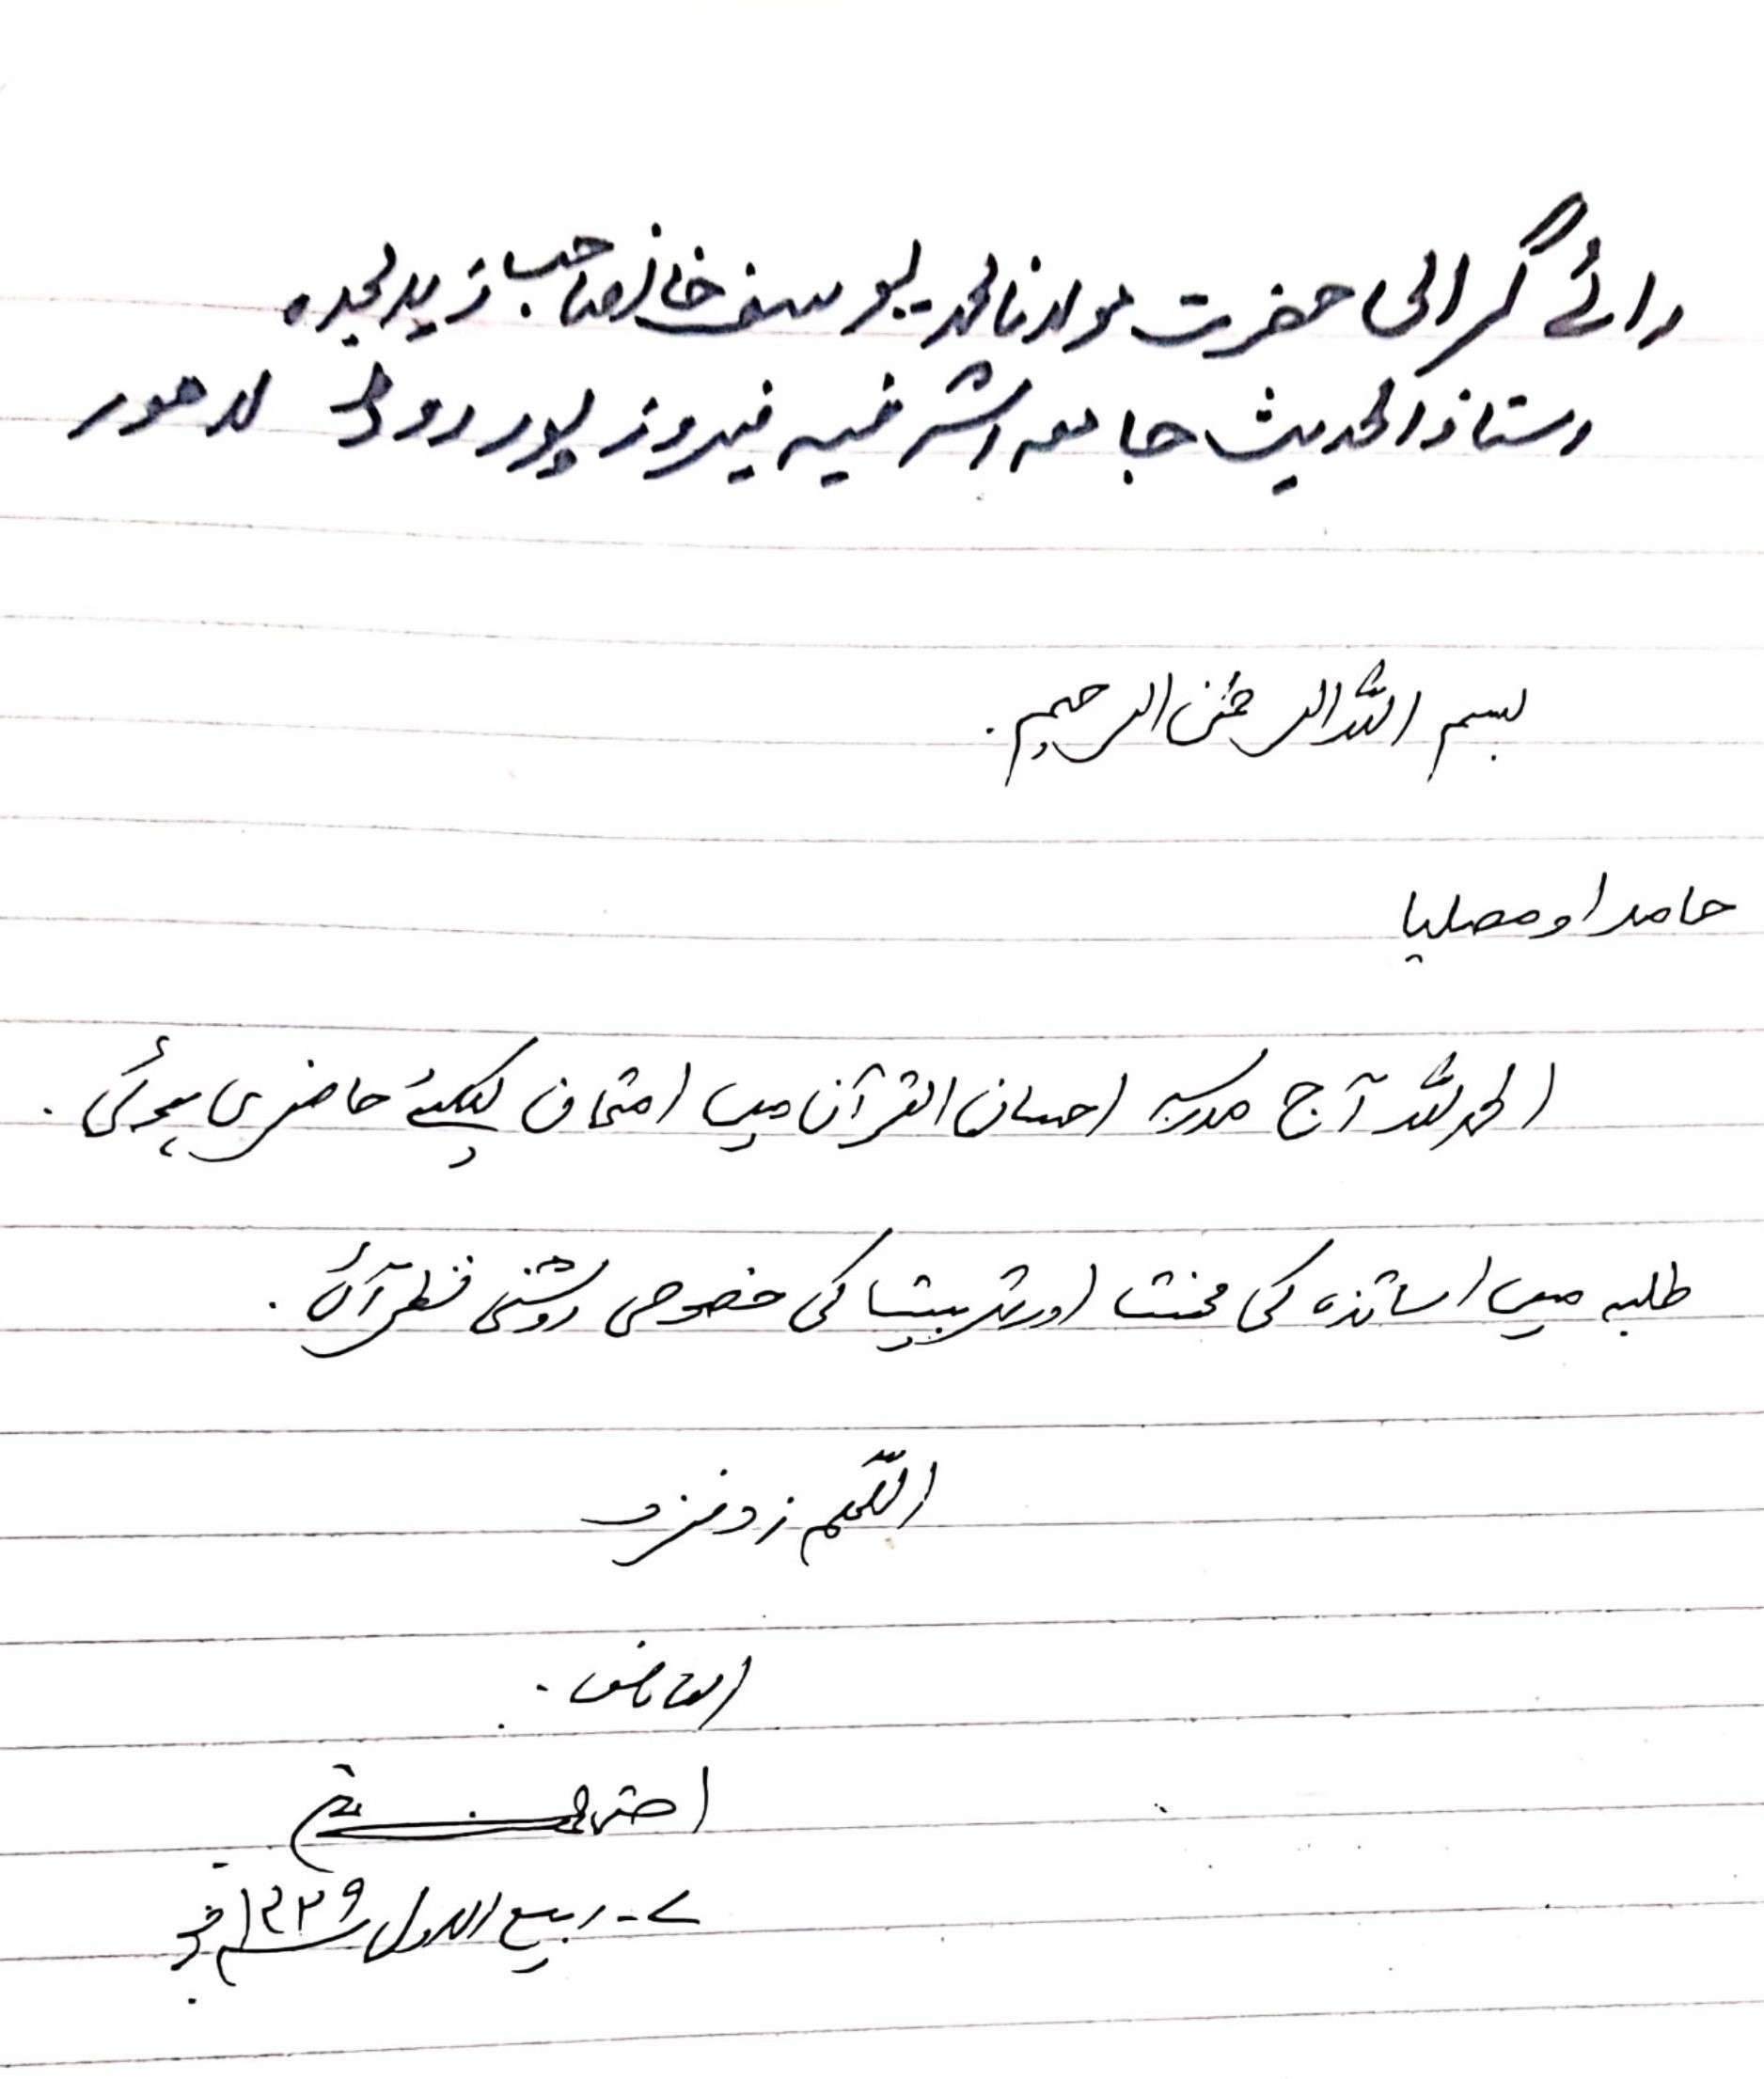 رائے گرامی حضرت مولانا محمد یوسف خان صاحب زید مجدہ
استاذ الحدیث جامعہ اشرفیہ فیروز پور روڈ لاہور
بسم اللہ الرحمٰن الرحیم ۔
حامدا و مصلیا
الحمد للہ آج مدرسہ احسان القرآن میں امتحان کیلئے حاضری ہوئی ۔
طلبہ میں اساتذہ کی محنت اور تربیت کی خصوصی روشنی نظر آئی ۔
اللّٰھم زد فزد
احقر
۷ - ربیع الاول ۱۴۳۹ھ